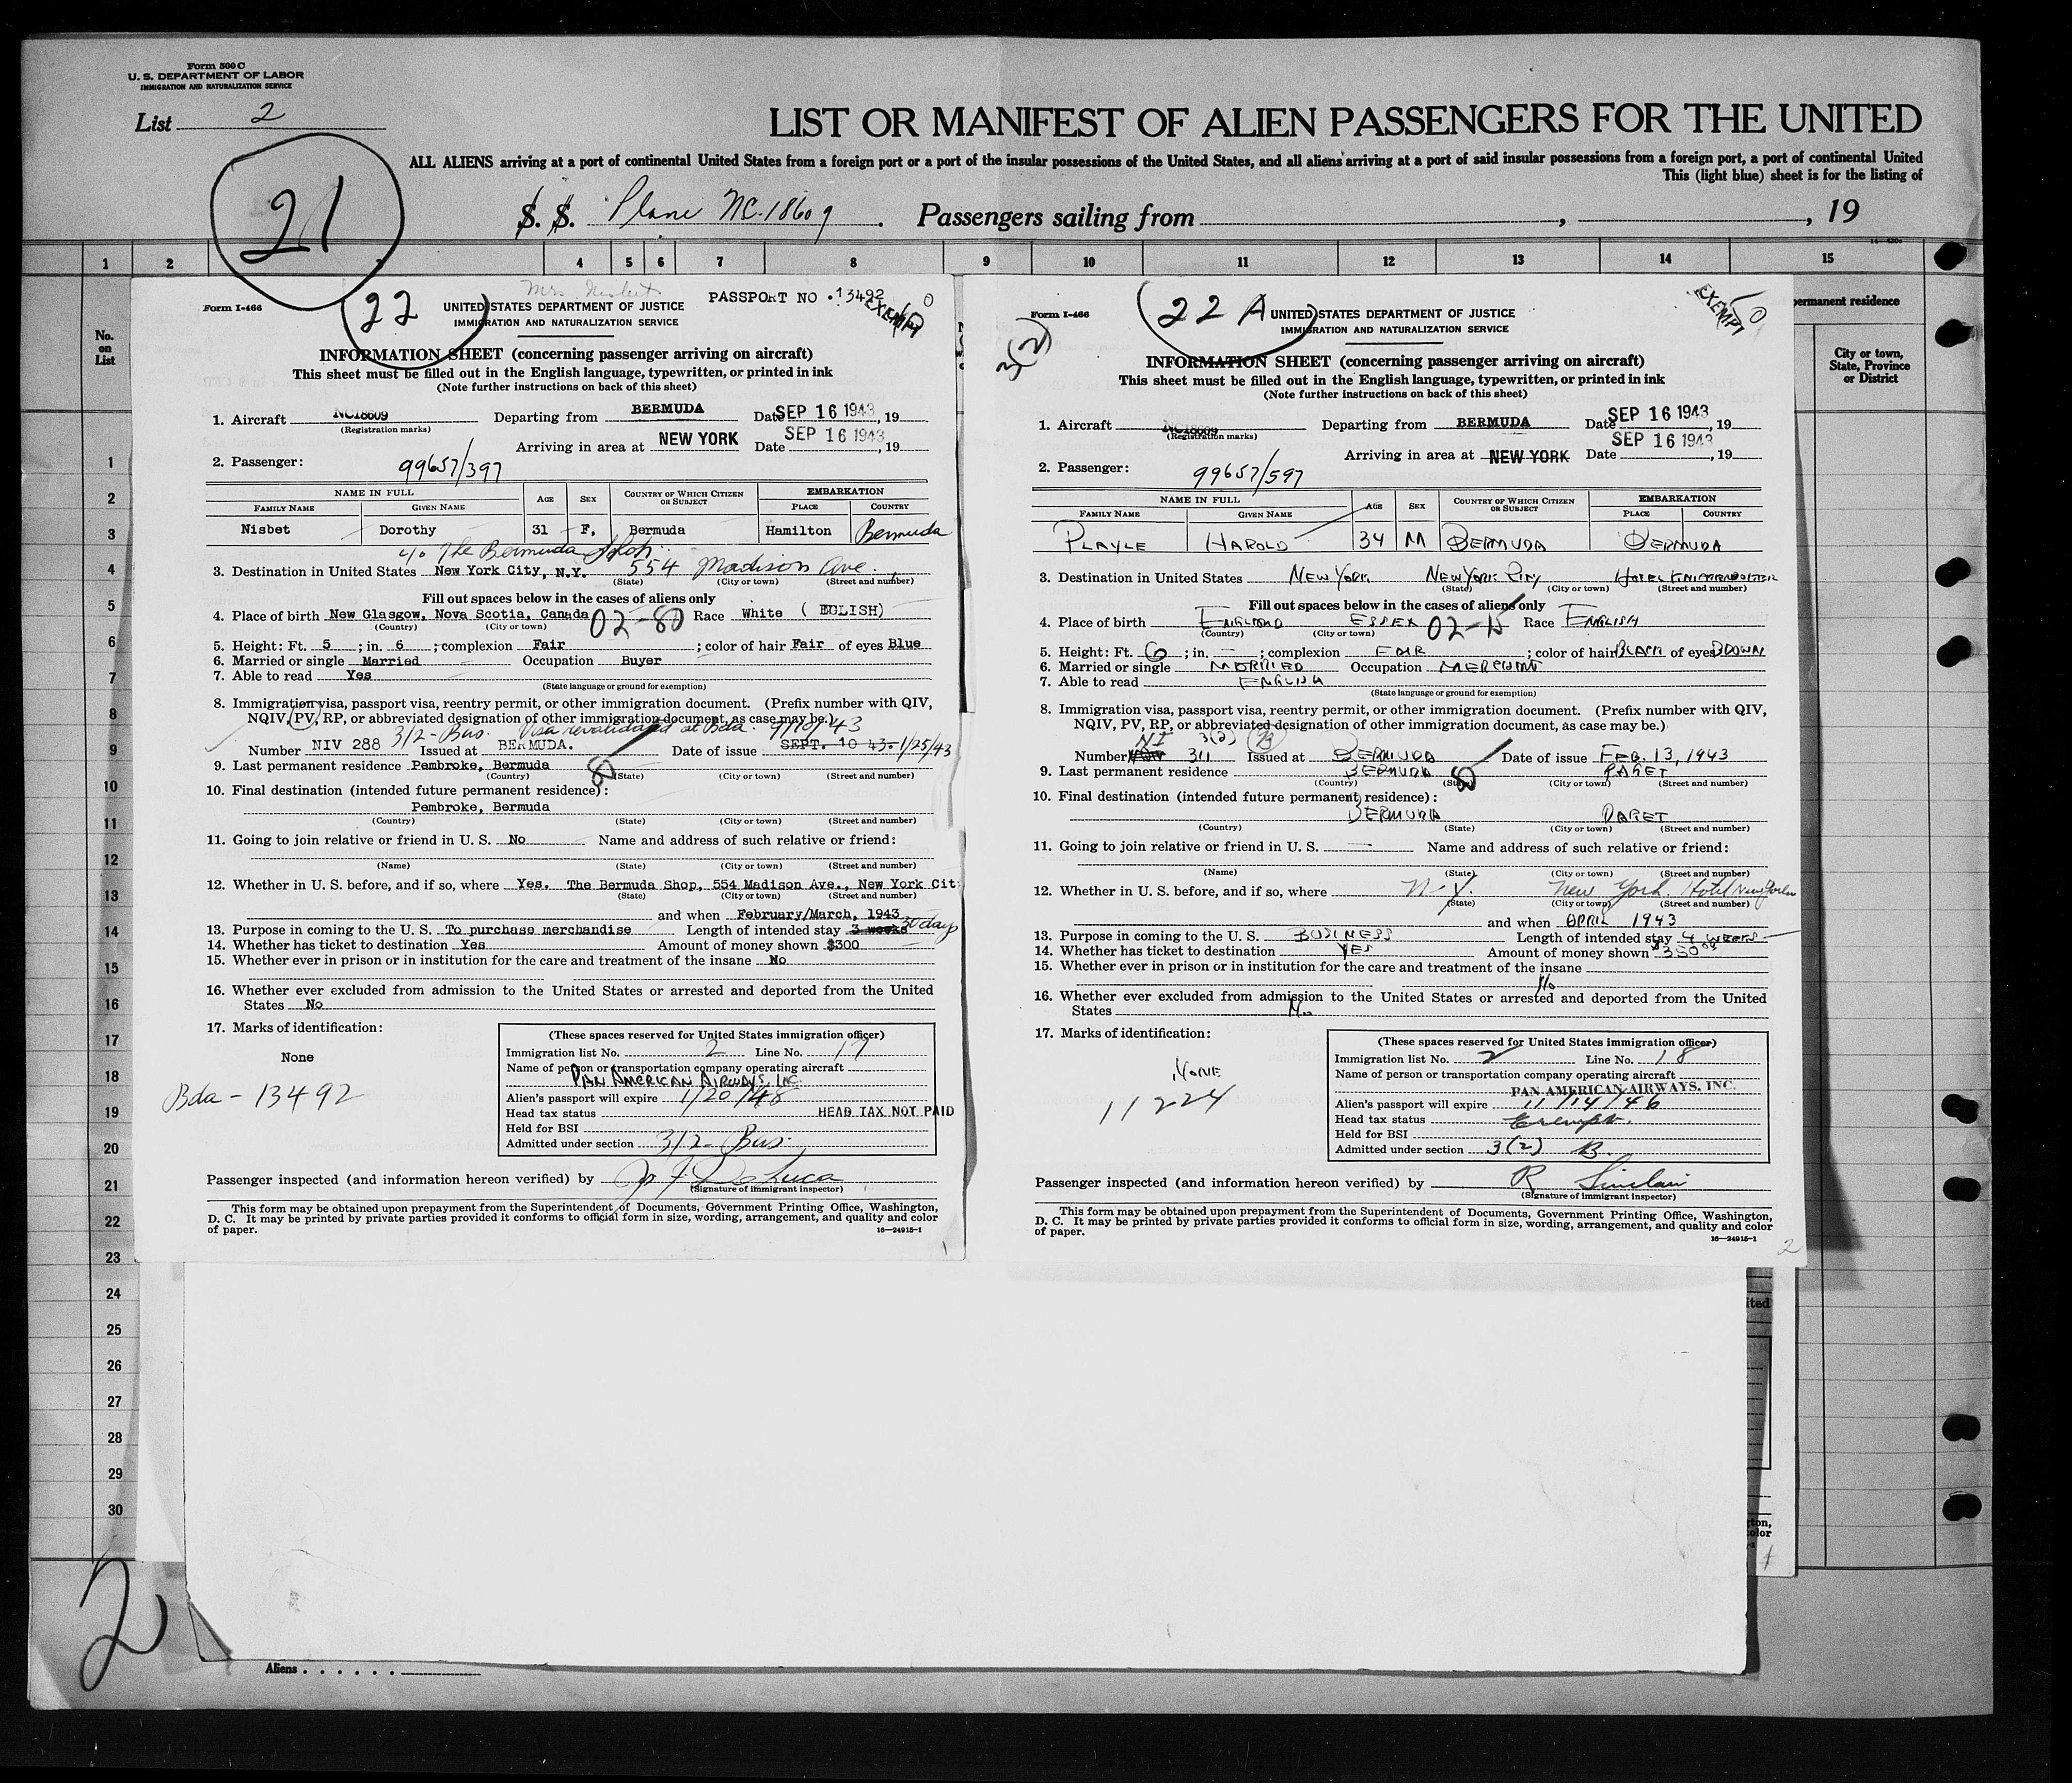 Form 500 C
U. S. DEPARTMENT OF LABOR
IMMIGRATION AND NATURALIZATION SERVICE
List 2
21
LIST OR MANIFEST OF ALIEN PASSENGERS FOR THE UNITED
ALL ALIENS arriving at a port of continental United States from a foreign port or a port of the insular possessions of the United States, and all aliens arriving at a port of said insular possessions from a foreign port, a port of continental United
This (light blue) sheet is for the listing of
S. S. Plane NC-18609. Passengers sailing from , , 19
1 2 4 5 6 7 8 9 10 11 12 13 14 15
No. on List
Mrs. Nisbet
PASSPORT NO. 13492
EXEMPT
Form I-466
22
UNITED STATES DEPARTMENT OF JUSTICE
IMMIGRATION AND NATURALIZATION SERVICE
INFORMATION SHEET (concerning passenger arriving on aircraft)
This sheet must be filled out in the English language, typewritten, or printed in ink
(Note further instructions on back of this sheet)
1. Aircraft NC18609 Departing from BERMUDA Date SEP 16 1943, 19
(Registration marks)
Arriving in area at NEW YORK Date SEP 16 1943, 19
2. Passenger: 99657/397
NAME IN FULL AGE SEX COUNTRY OF WHICH CITIZEN OR SUBJECT EMBARKATION
FAMILY NAME GIVEN NAME PLACE COUNTRY
Nisbet Dorothy 31 F, Bermuda Hamilton Bermuda
c/o The Bermuda Shop
3. Destination in United States New York City, N.Y. 554 Madison Ave.
(State) (City or town) (Street and number)
Fill out spaces below in the cases of aliens only
4. Place of birth New Glasgow, Nova Scotia, Canada 02-80 Race White ( EGLISH)
(Country) (City or town)
5. Height: Ft. 5; in. 6; complexion Fair; color of hair Fair of eyes Blue
6. Married or single Married Occupation Buyer
7. Able to read Yes
(State language or ground for exemption)
8. Immigration visa, passport visa, reentry permit, or other immigration document. (Prefix number with QIV,
NQIV, PV, RP, or abbreviated designation of other immigration document, as case may be.)
3/2-Bus. Visa revalidated at Bda. 9/10/43
Number NIV 288 Issued at BERMUDA. Date of issue SEPT. 10 43. 1/25/43
9. Last permanent residence Pembroke, Bermuda 80
(Country) (State) (City or town) (Street and number)
10. Final destination (intended future permanent residence):
Pembroke, Bermuda
(Country) (State) (City or town) (Street and number)
11. Going to join relative or friend in U. S. No Name and address of such relative or friend:
(Name) (State) (City or town) (Street and number)
12. Whether in U. S. before, and if so, where Yes. The Bermuda Shop, 554 Madison Ave., New York Cit
(State) (City or town) (Street and number)
and when February/March, 1943
13. Purpose in coming to the U. S. To purchase merchandise Length of intended stay 3 weeks 30 days
14. Whether has ticket to destination Yes Amount of money shown $300
15. Whether ever in prison or in institution for the care and treatment of the insane No
16. Whether ever excluded from admission to the United States or arrested and deported from the United
States No
17. Marks of identification:
None
Bda - 13492
(These spaces reserved for United States immigration officer)
Immigration list No. 2 Line No. 17
Name of person or transportation company operating aircraft
PAN AMERICAN AIRWAYS, INC.
Alien's passport will expire 1/20/48
Head tax status HEAD TAX NOT PAID
Held for BSI
Admitted under section 3/2- Bus.
Passenger inspected (and information hereon verified) by
(Signature of immigrant inspector)
This form may be obtained upon prepayment from the Superintendent of Documents, Government Printing Office, Washington,
D. C. It may be printed by private parties provided it conforms to official form in size, wording, arrangement, and quality and color
of paper.
16-24915-1
1
Form I-466
22 A
3(2)
EXEMPT
UNITED STATES DEPARTMENT OF JUSTICE
IMMIGRATION AND NATURALIZATION SERVICE
INFORMATION SHEET (concerning passenger arriving on aircraft)
This sheet must be filled out in the English language, typewritten, or printed in ink
(Note further instructions on back of this sheet)
1. Aircraft NC18609 Departing from BERMUDA Date SEP 16 1943, 19
(Registration marks)
Arriving in area at NEW YORK Date SEP 16 1943, 19
2. Passenger: 99657/597
NAME IN FULL AGE SEX COUNTRY OF WHICH CITIZEN OR SUBJECT EMBARKATION
FAMILY NAME GIVEN NAME PLACE COUNTRY
PLAYLE HAROLD 34 M BERMUDA BERMUDA
3. Destination in United States NEW YORK NEW YORK CITY HOTEL KNICKERBOCKER
(State) (City or town) (Street and number)
Fill out spaces below in the cases of aliens only
4. Place of birth ENGLAND ESSEX Race ENGLISH
(Country) (City or town)
5. Height: Ft. 6; in. -; complexion FAIR; color of hair BLACK of eyes BROWN
6. Married or single MARRIED Occupation MERCHANT
7. Able to read ENGLISH
(State language or ground for exemption)
8. Immigration visa, passport visa, reentry permit, or other immigration document. (Prefix number with QIV,
NQIV, PV, RP, or abbreviated designation of other immigration document, as case may be.)
NI 3(2) B
Number 311 Issued at BERMUDA Date of issue FEB. 13, 1943
9. Last permanent residence BERMUDA 80 PAGET
(Country) (State) (City or town) (Street and number)
10. Final destination (intended future permanent residence):
BERMUDA PAGET
(Country) (State) (City or town) (Street and number)
11. Going to join relative or friend in U. S. — Name and address of such relative or friend:
(Name) (State) (City or town) (Street and number)
12. Whether in U. S. before, and if so, where N.Y. New York. Hotel New Yorker
(State) (City or town) (Street and number)
and when APRIL 1943
13. Purpose in coming to the U. S. BUSINESS Length of intended stay 4 WEEKS
14. Whether has ticket to destination YES Amount of money shown $350.00
15. Whether ever in prison or in institution for the care and treatment of the insane
No
16. Whether ever excluded from admission to the United States or arrested and deported from the United
States No
17. Marks of identification:
NONE
11224
(These spaces reserved for United States immigration officer)
Immigration list No. 2 Line No. 18
Name of person or transportation company operating aircraft
PAN AMERICAN AIRWAYS, INC.
Alien's passport will expire 11/14/46
Head tax status Exempt.
Held for BSI
Admitted under section 3(2) B.
Passenger inspected (and information hereon verified) by R Sinclair
(Signature of immigrant inspector)
This form may be obtained upon prepayment from the Superintendent of Documents, Government Printing Office, Washington,
D. C. It may be printed by private parties provided it conforms to official form in size, wording, arrangement, and quality and color
of paper.
16-24915-1
2
permanent residence
City or town, State, Province or District
1
2
3
4
5
6
7
8
9
10
11
12
13
14
15
16
17
18
19
20
21
22
23
24
25
26
27
28
29
30
2
Aliens